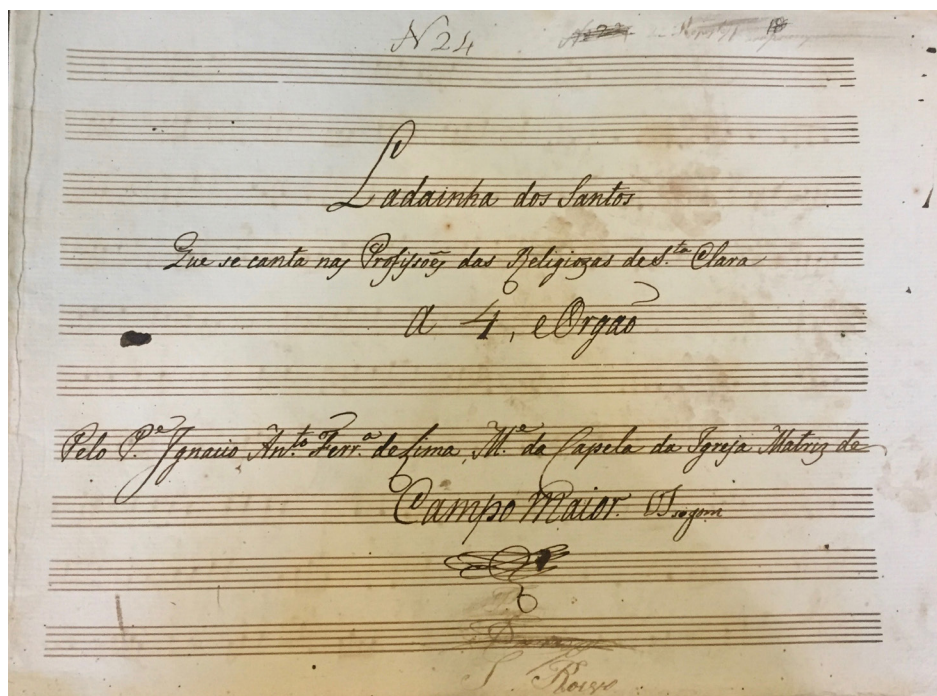 N 24
18
Ladainha dos Santos
Que se canta nas Profissoẽs das Religiozas de S.ta Clara
A 4, e Orgaõ
Pelo P.e Ignacio An.to Ferr.a de Lima, M.e da Capela da Igreja Matriz de
Campo Maior.